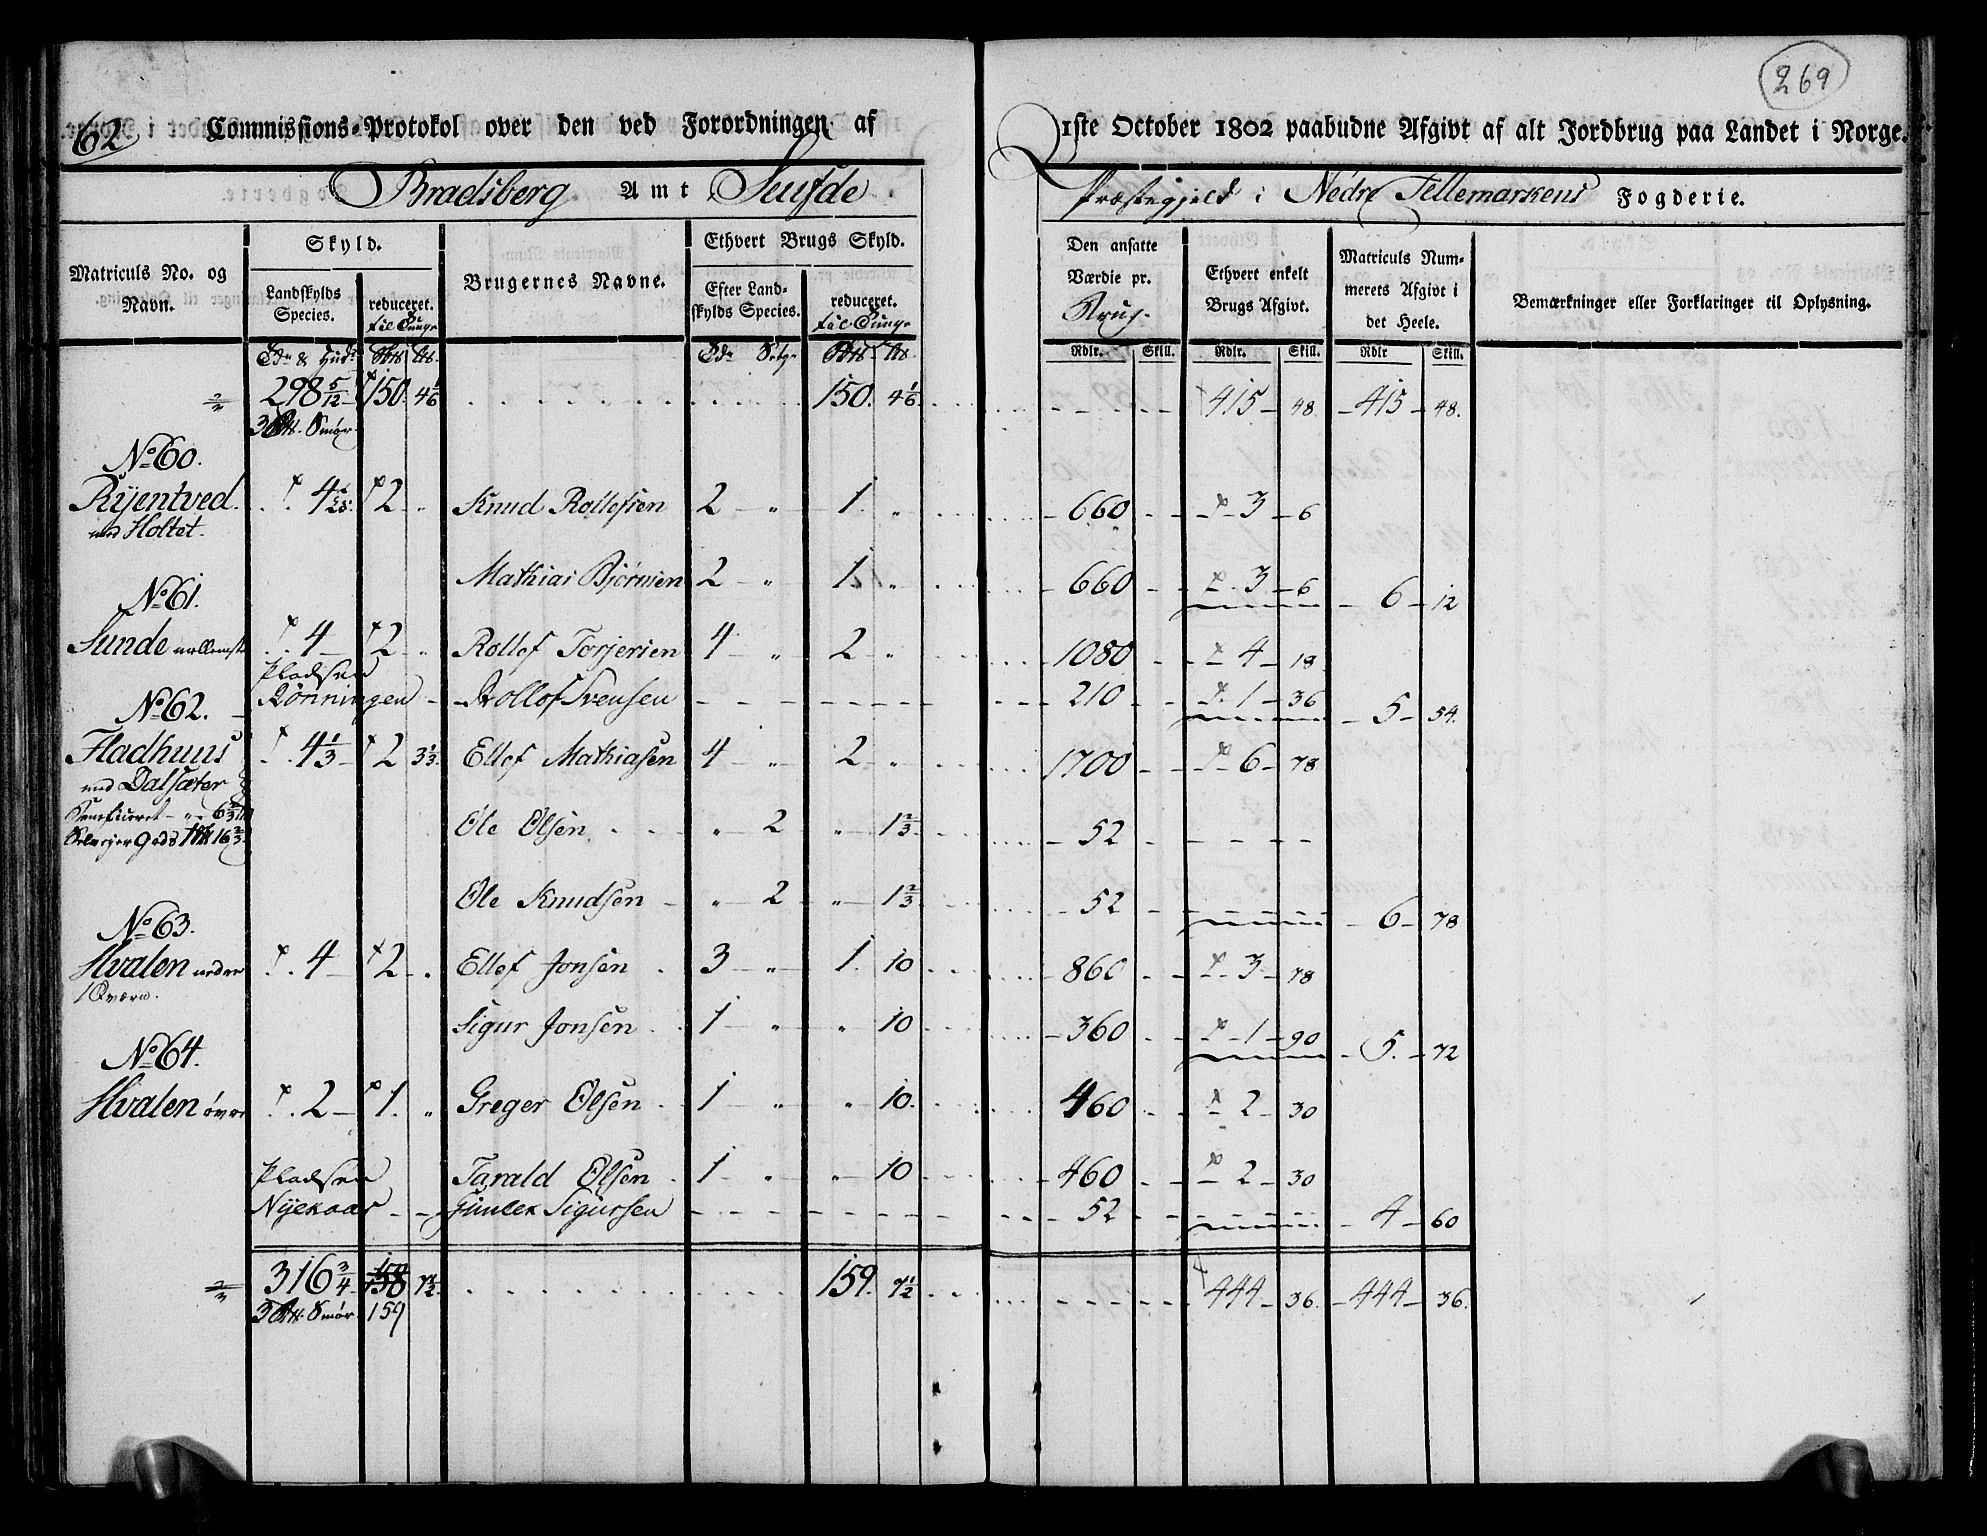 269
62 Commissions-Protokol over den ved Forordningen af 1ste October 1802 paabudne Afgivt af alt Jordbrug paa Landet i Norge.
Bradsberg Amt Seufde Præstegjeld i Nedre Tellemarkens Fogderie.
Matriculs No. og Navn.
Skyld.
Landskylds Species.
reduceret. til Tunge
Brugernes Navne.
Ethvert Brugs Skyld.
Efter Landskylds Species.
reduceret. til Tunge
Den ansatte Værdie pr. Brug.
Ethvert enkelt Brugs Afgivt.
Matriculs Nummerets Afgivt i det Heele.
Bemærkninger eller Forklaringer til Oplysning.
Rdlr. Skill. Rdlr. Skill. Rdlr Skill.
298 5/12 150. 4 1/6 150. 4 1/6 415 48 415 48.
3 Smør
No 60.
Ryentved 4 2 Knud Rollefsen 2 " 1. " 660 3 6
med Holtet.
Mathias Bjørnsen 2 " 1. " 660 3 6 6 12
No 61.
Sunde mellemste 4 2 " Rollef Torjersen 4 " 2 " 1080 4 18
Pladsen
Rønningen Rollof Svensen 210 1 36 5 54.
No 62.
Fladhuus 4 1/3 2 3 1/3 Ellef Mathiasen 4 " 2 " 1700 6 78
med Dalsæter
Beneficeret " 6 2/3
Selvejer Gods 1 16 2/3
Ole Olsen " 2 " 1 2/3 52
Ole Knudsen " 2 " 1 2/3 52 6 78
No 63.
Hvalen nedre 4 2 Ellef Jonsen 3 " 1. 10 860 3 78
1 Qværn.
Sigur Jonsen 1 " " 10 360 1 90 5. 72
No 64.
Hvalen øvre 2 1. " Greger Olsen 1 " " 10. 460 2 30
Tarald Olsen 1 " " 10 460 2 30
Pladsen
Nyekaas Gunlek Sigursen 52 4 60
316 3/4 158 7 1/2 159. 7 1/2 444 36. 444 36.
3 Smør 159